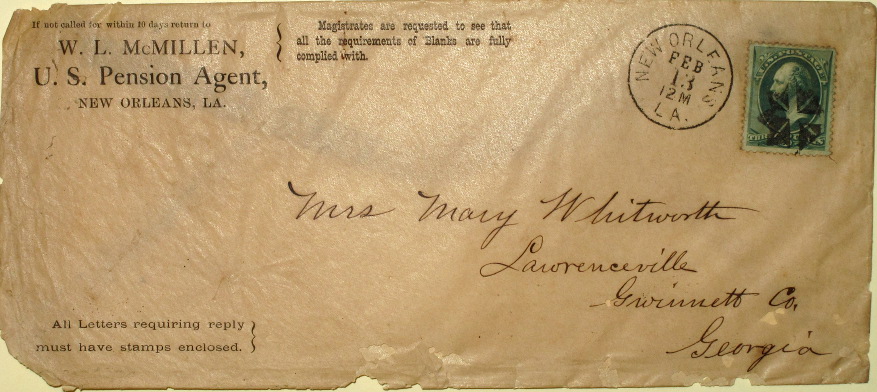 If not called for within 10 days return to
W. L. McMILLEN,
U. S. Pension Agent,
NEW ORLEANS, LA.
Magistrates are requested to see that
all the requirements of Blanks are fully
complied with.
NEW ORLEANS
FEB
13
12M
LA.
Mrs Mary Whitworth
Lawrenceville
Gwinnett Co,
Georgia
All Letters requiring reply
must have stamps enclosed.